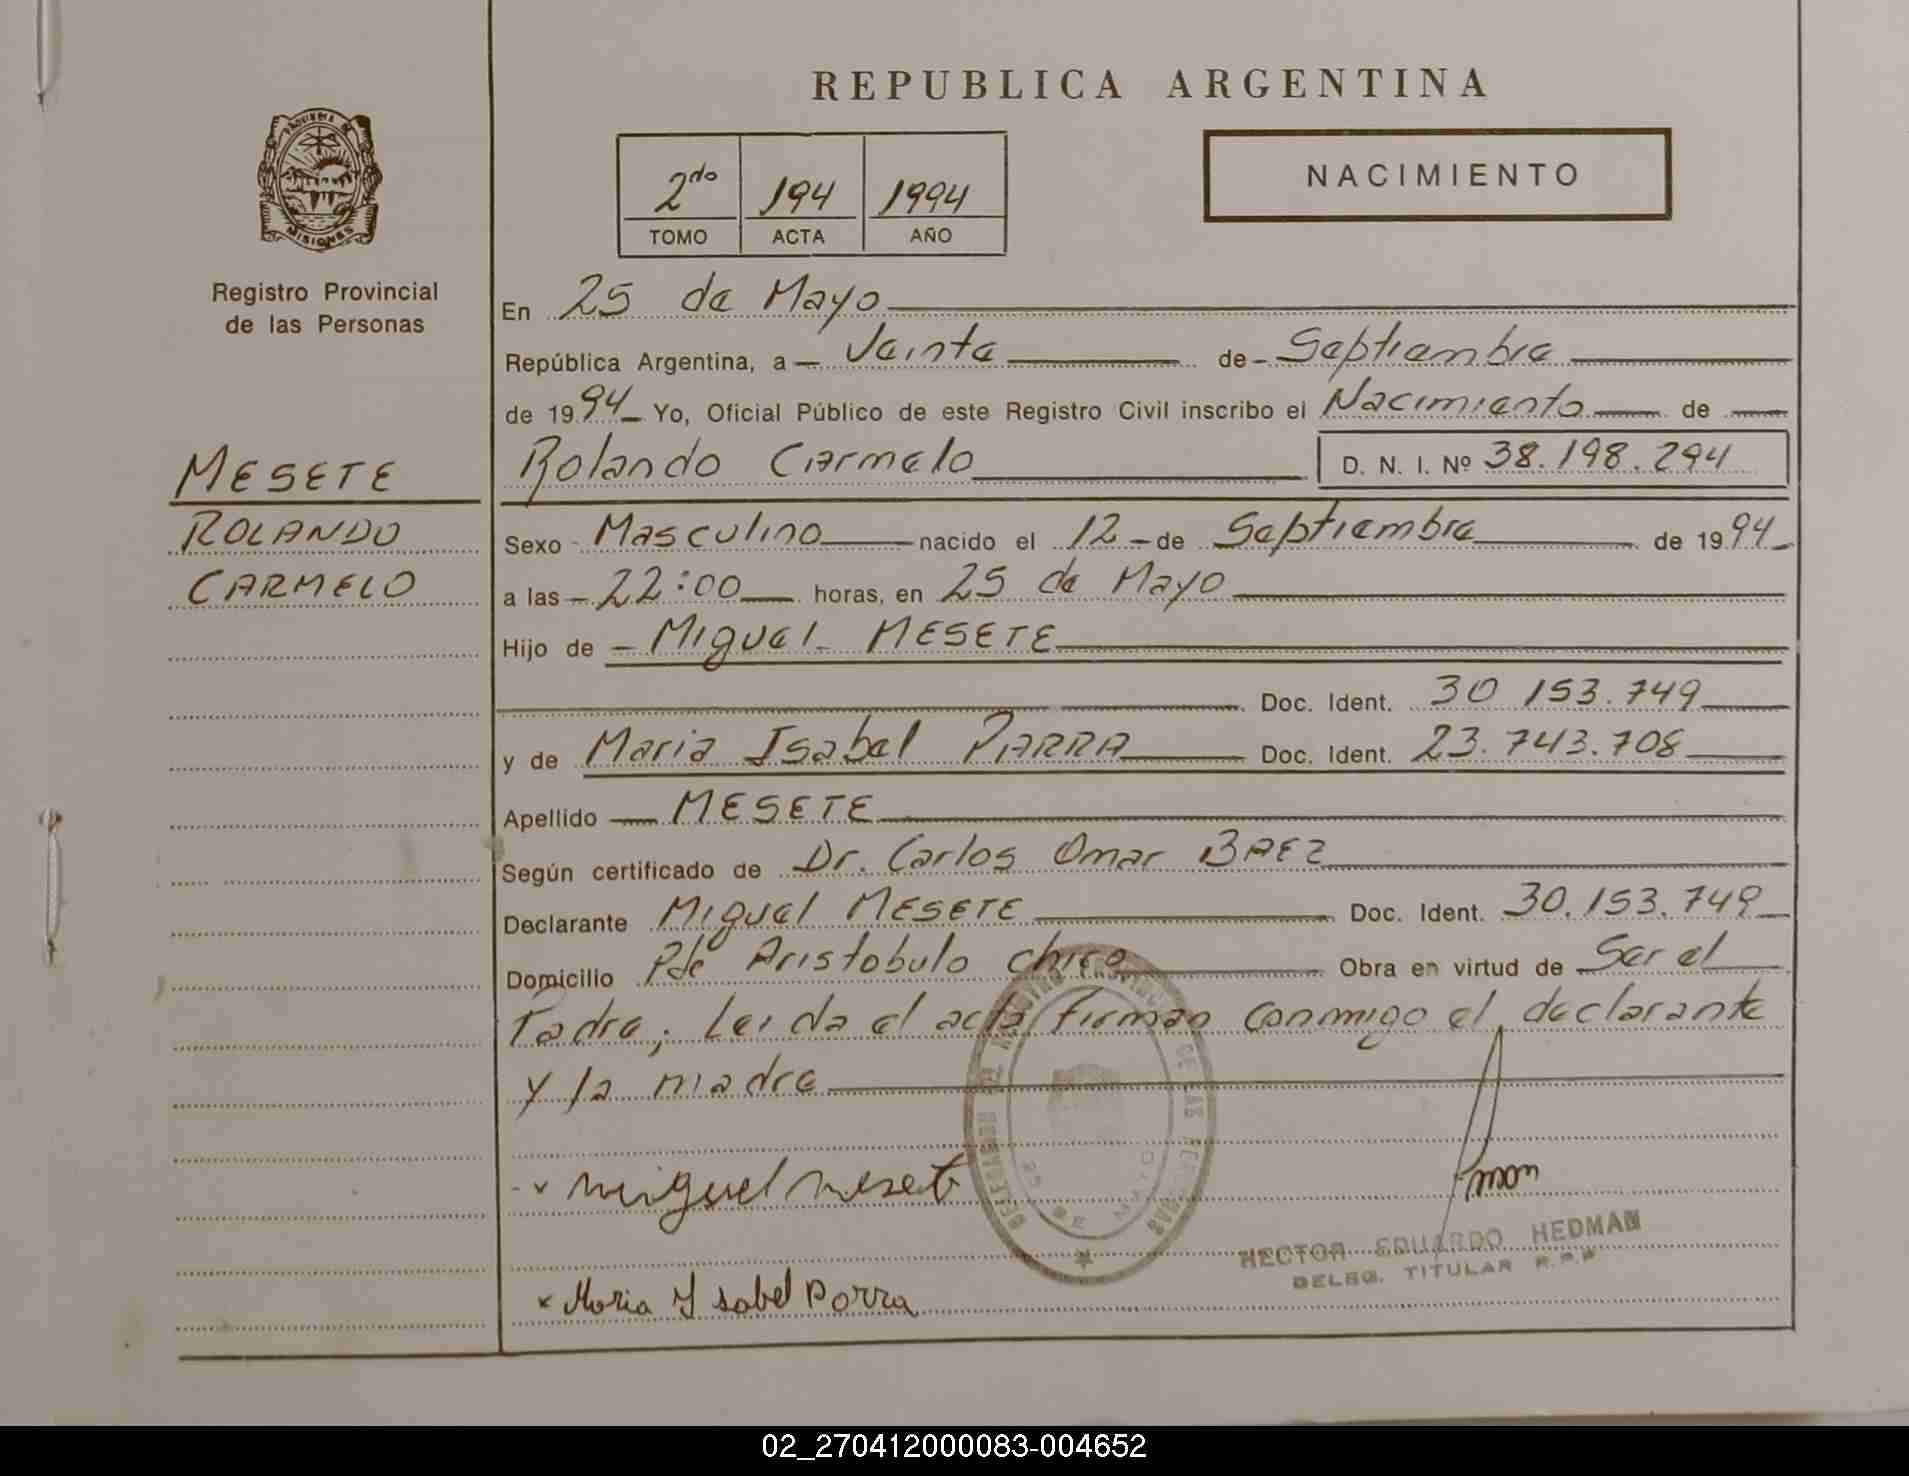 REPUBLICA ARGENTINA
PROVINCIA DE
MISIONES
Registro Provincial
de las Personas
2do 194 1994
TOMO ACTA AÑO
NACIMIENTO
MESETE
ROLANDO
CARMELO
En 25 de Mayo
República Argentina, a Veinte de Septiembre
de 1994 Yo, Oficial Público de este Registro Civil inscribo el Nacimiento de
Rolando Carmelo D. N. I. Nº 38.198.294
Sexo Masculino nacido el 12 de Septiembre de 1994
a las 22:00 horas, en 25 de Mayo
Hijo de Miguel MESETE
Doc. Ident. 30 153.749
y de Maria Isabel PARRA Doc. Ident. 23.743.708
Apellido MESETE
Según certificado de Dr. Carlos Omar BAEZ
Declarante Miguel MESETE Doc. Ident. 30.153.749
Domicilio Pde Aristobulo chico Obra en virtud de Ser el
Padre; Leida el acta firman conmigo el declarante
y la madre
DELEGACION DEL REGISTRO PROVINCIAL DE LAS PERSONAS
25 DE MAYO
x miguel meset
HECTOR EDUARDO HEDMAN
DELEG. TITULAR R.P.P.
x Maria Ysabel Parra
02_270412000083-004652